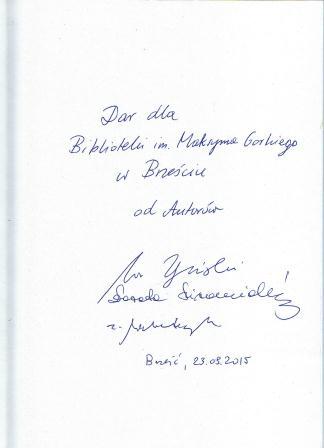 Dar dla
Biblioteki im. Maksyma Gorkiego
w Brześciu
od Autorów
Brześć, 23.09.2015